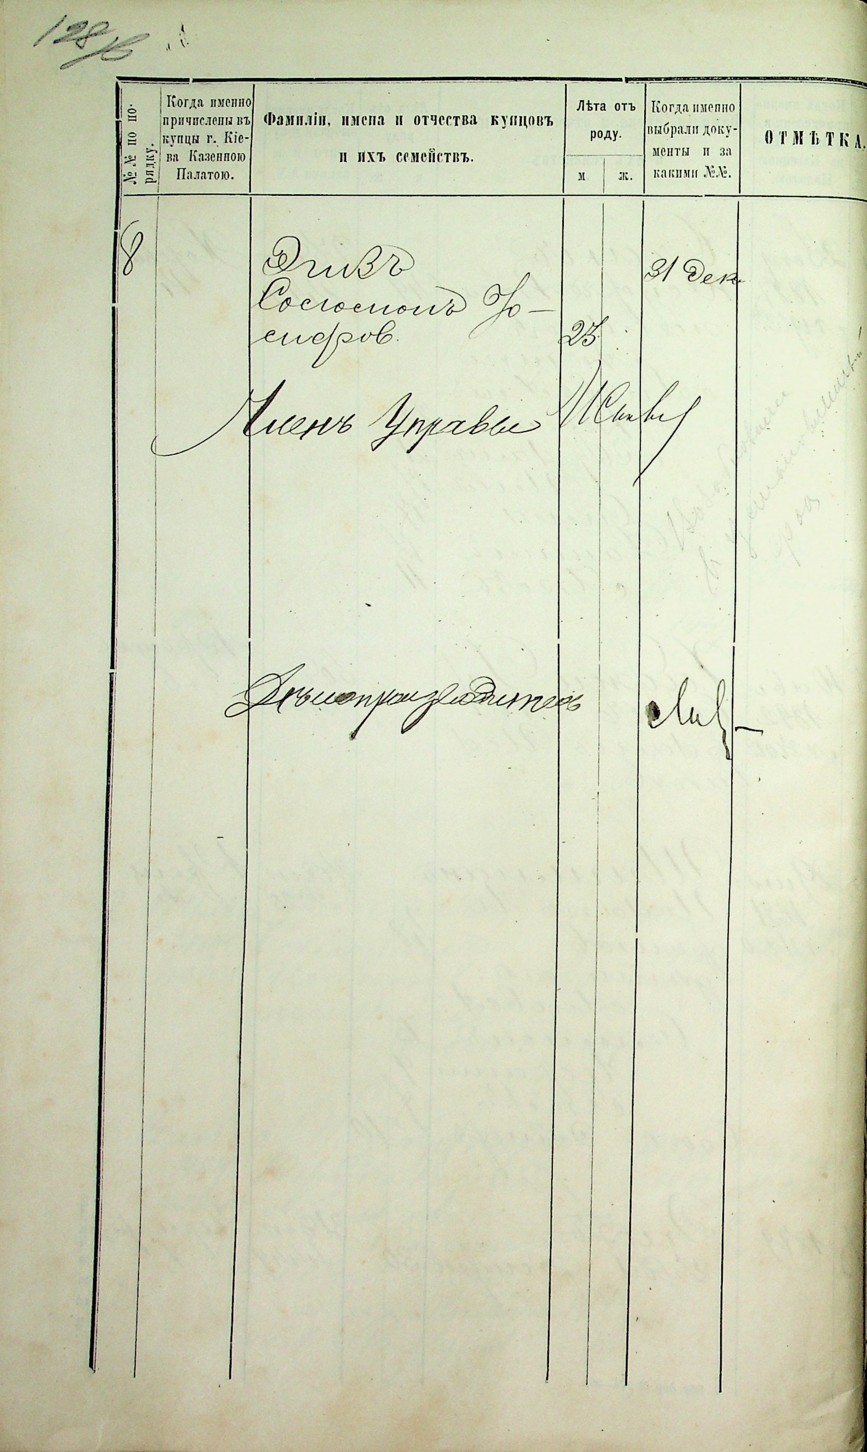 128
№№ по по-
рядку.
Когда именно
причислены въ
купцы г. Кіе-
ва Казенною
Палатою.
Фамиліи, имена и отчества купцовъ
и ихъ семействъ.
Лѣта отъ
роду.
м.
ж.
Когда именно
выбрали доку-
менты и за
какими №№.
ОТМѢТКА.
8
Эгизъ
Соломонъ Іо-
сифов.
23
31 Дек.
Членъ Управы
Дѣлопроизводитель